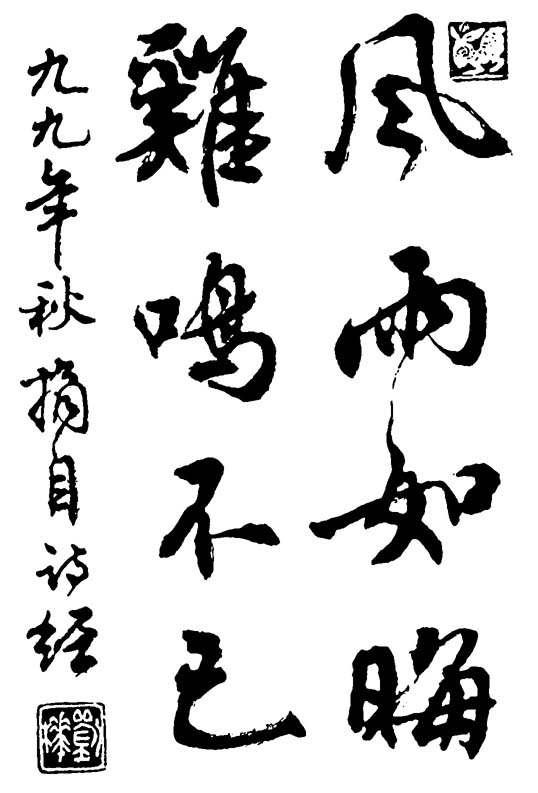 风雨如晦
雞鳴不已
九九年秋摘自诗经